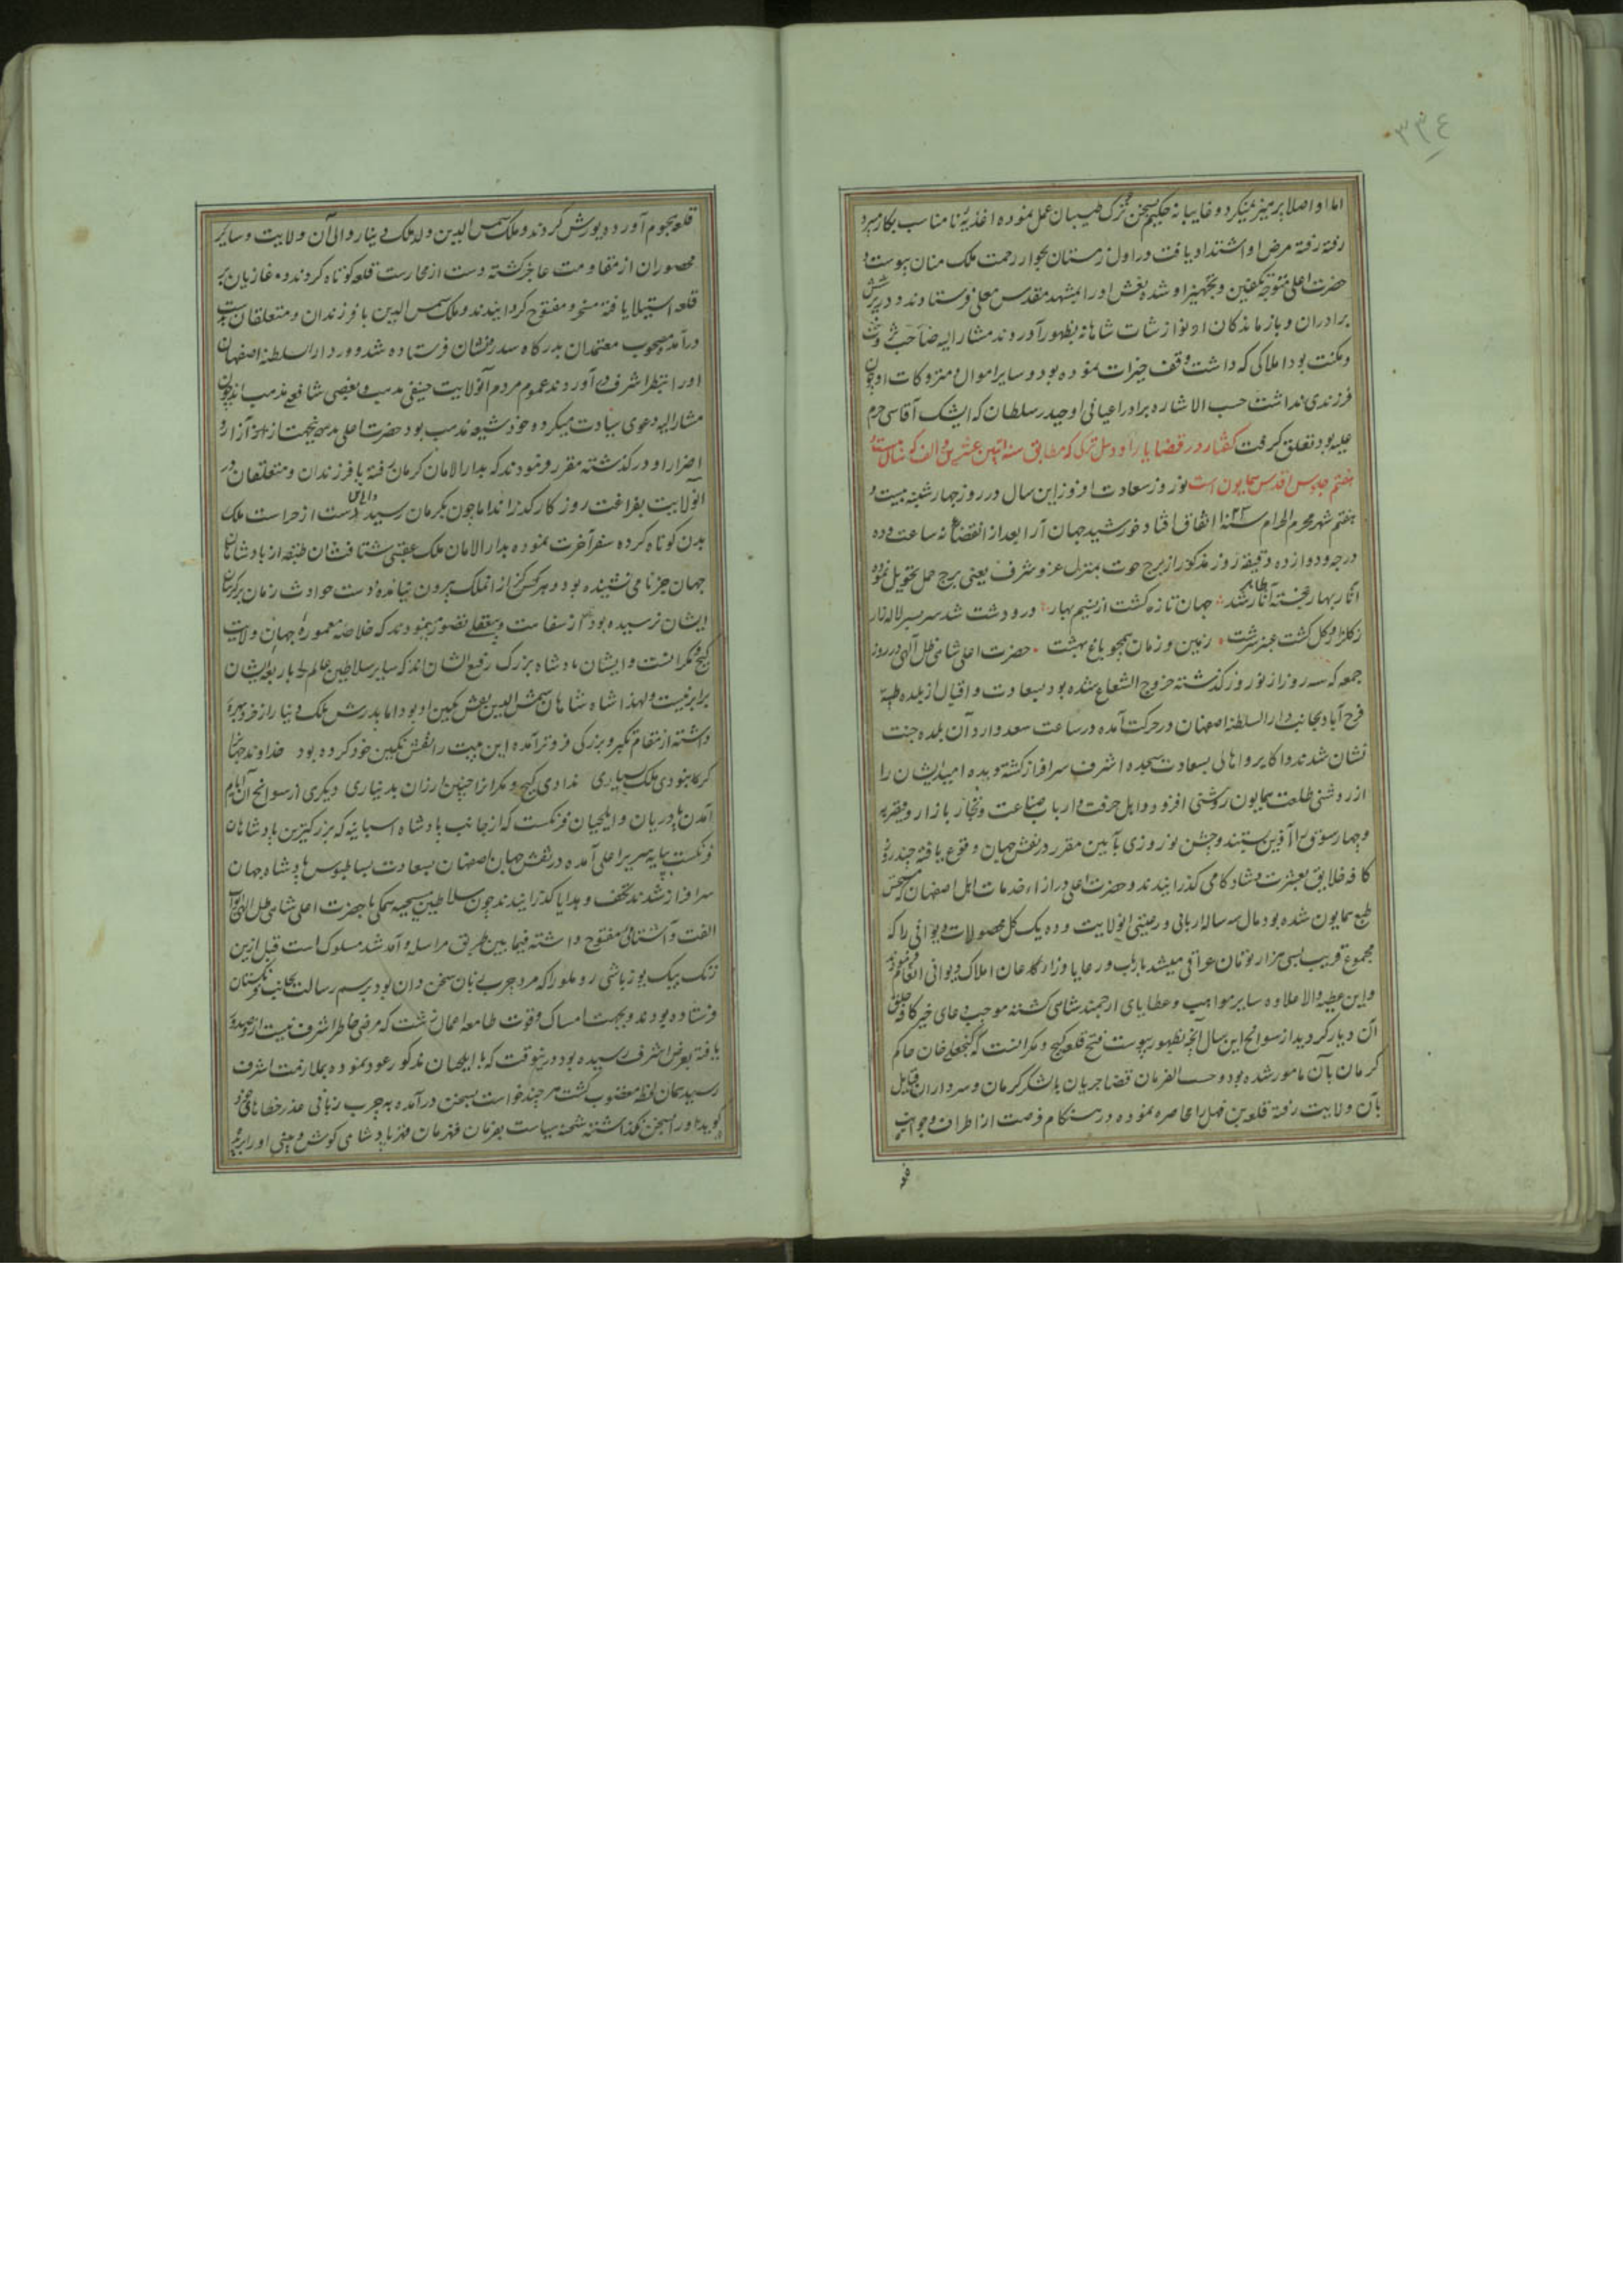 ٣٣٤
اما او اصلا پرهیز نمیکرد و غایبانه حکیم بسخن طبیبان عمل نموده اغذیۀ نامناسب بکار میبرد
رفته رفته مرض او اشتداد یافت در اول زمستان بجوار رحمت ملک منان پیوست و
حضرت اعلی متوجه تکفین و تجهیز او شده نعش او را بمشهد مقدس معلی فرستادند و در پرسش
برادران و بازماندکان او نوازشات شاهانه بظهور آوردند مشار الیه صاحب ثروت
و مکنت بود املاکی که داشت وقف خیرات نموده بود و سایر اموال و متروکات او چون
فرزندی نداشت حسب الاشاره برادر اعیانی او حیدر سلطان که ایشک آقاسی حرم
علیه بود تعلق کرفت کفتار در قضایا ترکی که مطابق سنه اثنین عشرین و الف که سال
هفتم جلوس اقدس همایون است نوروز سعادت افروز این سال در روز چهارشنبه بیست و
هفتم شهر محرم الحرام اتفاق افتاد خورشید جهان آرا بعد از انقضا نه ساعت و ده
درجه و دوازده دقیقه روز مذکور از برج حوت بمنزل عز و شرف یعنی برج حمل تحویل نموده
آثار بهار خجسته آثار شد جهان تازه کشت از نسیم بهار در و دشت شد سر بسر لاله زار
ز کلزار و کل کشت عنبر سرشت زمین و زمان همچو باغ بهشت حضرت اعلی شاهی ظل آلهی در روز
جمعه که سه روز از نوروز کذشته خروج الشعاع شده بود بسعادت و اقبال از بلده طیبه
فرح آباد بجانب دار السلطنه اصفهان در حرکت آمده در ساعت سعد وارد آن بلده جنت
نشان شدند و اکابر و اهالی بسعادت سجده اشرف سرافراز کشته و دیده امید ایشان را
از روشنی طلعت همایون روشنی افزود و اهل حرفت و ارباب صناعت و تجار بازار و قیصریه
و چهار سوق را آذین بستند و جشن نوروزی بآیین مقرر در نقش جهان وقوع یافته چند روز
کافه خلایق بعشرت و شادکامی کذرانیدند و حضرت اعلی در ازاء خدمات اهل اصفهان که مستحسن
طبع همایون شده بود مال سه ساله ارباب و رعیتی انولایت و ده یک کل محصولات دیوانی را که
مجموع قریب بسی هزار تومان عراقی میشد بارباب و رعایا و زارعان املاک دیوانی انعام فرمودند
و این عطیه والا علاوه سایر مواهب و عطایای ارجمند شاهی کشته موجب دعای خیر کافه خلق
آن دیار کردید از سوانح این سال آنچه بظهور پیوست فتح قلعه کیج و مکرانست که کنجعلیخان حاکم
کرمان بآن مامور شده بود و حسب الفرمان قضا جریان با لشکر کرمان و سرداران قبایل
بآن ولایت رفته قلعه بن فهل را محاصره نموده در هنکام فرصت از اطراف و جوانب
قلعه
قلعه هجوم آورده یورش کردند و ملک شمس الدین ولد ملک دینار والی آن ولایت و سایر
محصوران از مقاومت عاجز کشته دست از محارست قلعه کوتاه کردند و غازیان بر
قلعه استیلا یافته مسخر و مفتوح کردانیدند و ملک شمس الدین با فرزندان و متعلقان بدست
درآمده مصحوب معتمدان بدرکاه سدره نشان فرستاده شد و در دار السلطنه اصفهان
او را بنظر اشرف در آوردند عموم مردم آنولایت حنفی مذهب و بعضی شافعی مذهب اند چون
مشار الیه دعوی سیادت میکرد و خود شیعه مذهب بود حضرت اعلی بدین جهت از آزار و
اضرار او در کذشته مقرر فرمودند که بدار الامان کرمان رفته با فرزندان و متعلقان در
آنولایت بفراغت روز کار کذراند اما چون بکرمان رسید دست از حراست ملک
بدن کوتاه کرده سفر آخرت نموده بدار الامان ملک عقبی شتافت شان طبقه از بادشاهان
جهان جز نامی نشنیده بود و هرکز از آن ملک بیرون نیامده دست حوادث زمان
ایشان نرسیده بود از سفاهت و بیعقلی تصور مینمودند که خلاصه معموره جهان ولایت
کیج و مکرانست و ایشان بادشاه بزرک رفیع الشان اند که سایر سلاطین عالم را با ربقه ایشان
برابر نیست و لهذا شاه شاهان شمس الدین نقش نکین او بود اما پدرش ملک دینار از خرد بهره
داشته از مقام تکبر و بزرکی فروتر آمده این بیت را نقش نکین خود کرده بود خداوند جهان
کر نمودی ملک بسیاری ندادی کیج و مکران چنین ارزان بدیناری دیکری از سوانح آن ایام
آمدن پادریان و ایلچیان فرنکست که از جانب بادشاه اسپانیه که بزرکترین پادشاهان
فرنکست بپایه سریر اعلی آمده در نقش جهان اصفهان بسعادت بساط بوس پادشاه جهان
سرافراز شدند تحف و هدایا کذرانیدند چون سلاطین مسیحیه همکی با حضرت اعلی شاهی ظل الهی ابواب
الفت و آشنائی مفتوح داشته فیمابین طریق مراسله و آمد شد مسلوک است قبل ازین
دنک بیک یوزباشی روملو را که مرد چرب زبان سخن دان بود برسم رسالت بجانب فرنکستان
فرستاده بودند و بجهت امساک و قوت طامعه اعمال زشت که مرضی خاطر اشرف نیست از و صدور
یافته بعرض اشرف رسیده بود درینوقت که با ایلچیان مذکور عود نموده بملازمت اشرف
رسید همان لحظه مغضوب کشت هر چند خواست بسخن درآمده بچرب زبانی عذر خطاهای خود
کوید او را بسخن نکذاشته شحنه سیاست بفرمان قهرمان قهر پادشاهی کوش و بینی او را بریده